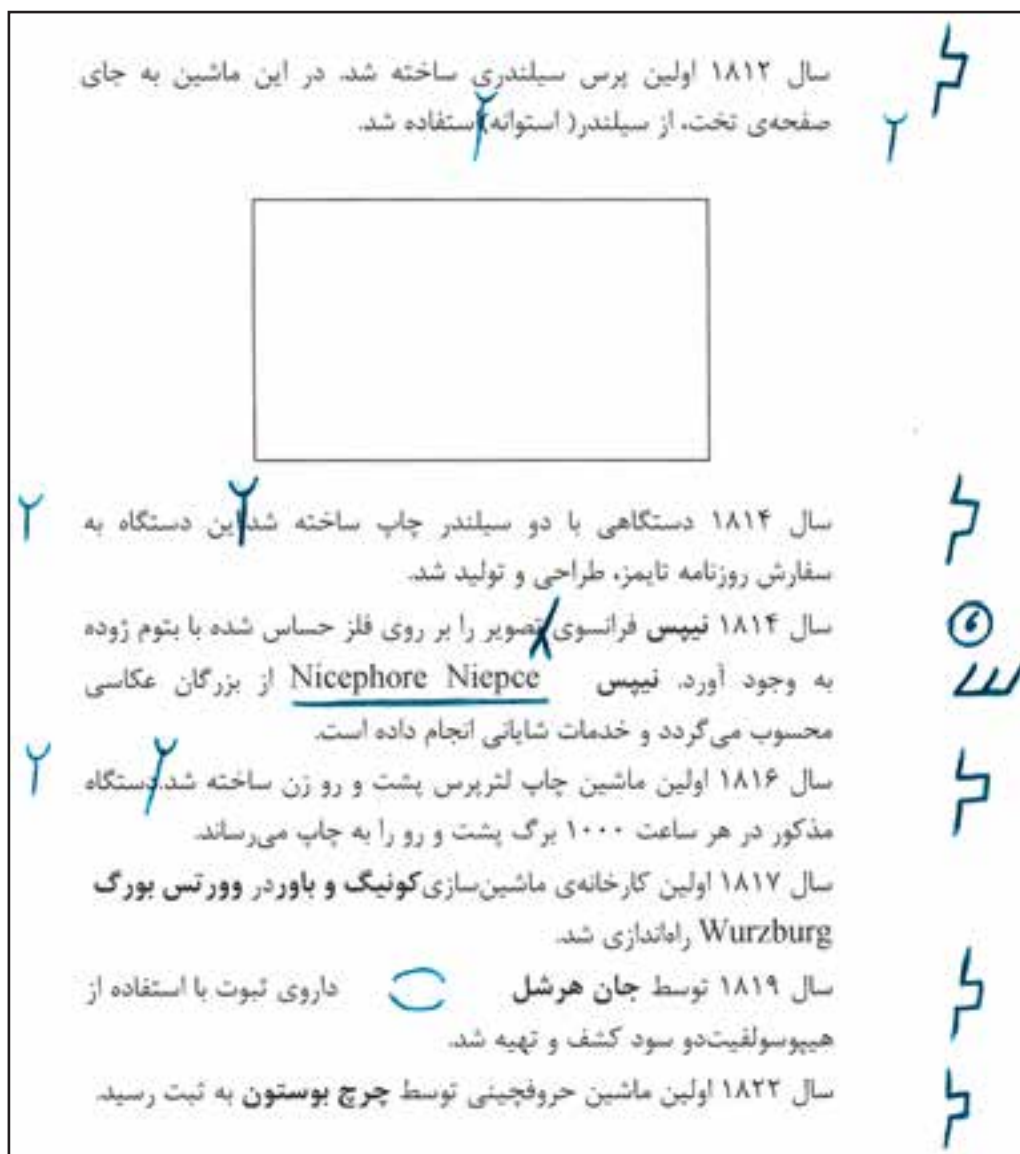 سال ۱۸۱۲ اولین پرس سیلندری ساخته شد. در این ماشین به جای
صفحه‌ی تخت، از سیلندر( استوانه)استفاده شد.
سال ۱۸۱۴ دستگاهی با دو سیلندر چاپ ساخته شد.این دستگاه به
سفارش روزنامه تایمز، طراحی و تولید شد.
سال ۱۸۱۴ نیپس فرانسوی تصویر را بر روی فلز حساس شده با بتوم ژوده
به وجود آورد. نیپس Nicephore Niepce از بزرگان عکاسی
محسوب می‌گردد و خدمات شایانی انجام داده است.
سال ۱۸۱۶ اولین ماشین چاپ لترپرس پشت و رو زن ساخته شد.دستگاه
مذکور در هر ساعت ۱۰۰۰ برگ پشت و رو را به چاپ می‌رساند.
سال ۱۸۱۷ اولین کارخانه‌ی ماشین‌سازی‌کونیگ و باوردر وورتس بورگ
Wurzburg راه‌اندازی شد.
سال ۱۸۱۹ توسط جان هرشل داروی ثبوت با استفاده از
هیپوسولفیت‌دو سود کشف و تهیه شد.
سال ۱۸۲۲ اولین ماشین حروفچینی توسط چرچ بوستون به ثبت رسید.